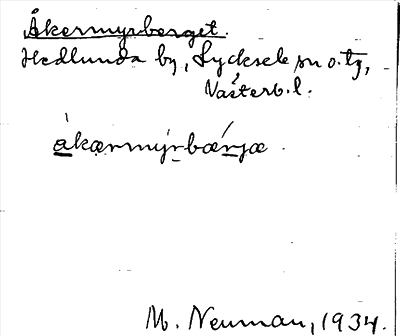 Åkermyrberget.
Hedlunda by, Lycksele sn o. tg,
Västerb. l.
àkærmýrbǽrjæ.
M. Neuman, 1934.